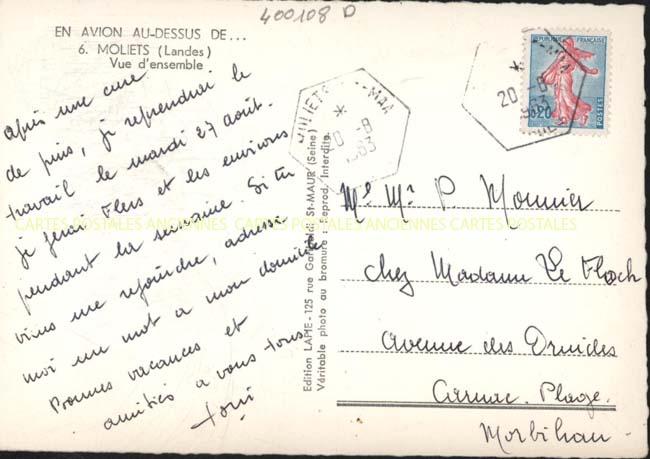 400108 D
EN AVION AU-DESSUS DE...
6. MOLIETS (Landes)
Vue d'ensemble
après une cure
de pins, je reprendrai le
travail le mardi 27 août.
je ferai Flers et les environs
pendant la semaine. Si tu
viens me rejoindre, adresse
moi un mot à mon domicile
Bonnes vacances et
amitiés à vous tous
MOLIETS
20 -8
1963
Edition LAPIE - 125 rue St-MAUR (Seine)
Véritable photo au bromure - Reprod. Interdite.
REPUBLIQUE FRANÇAISE
0,20
POSTES
20 -8
1963
Mr P. Monnier
chez Madame Le Floch
Avenue des Druides
Carnac. Plage.
Morbihan -
CARTES POSTALES ANCIENNES CARTES POSTALES ANCIENNES CARTES POSTALES